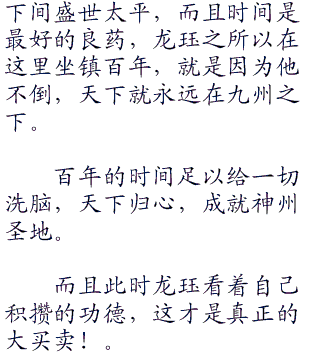 下间盛世太平，而且时间是
最好的良药，龙珏之所以在
这里坐镇百年，就是因为他
不倒，天下就永远在九州之
下。
百年的时间足以给一切
洗脑，天下归心，成就神州
圣地。
而且此时龙珏看着自己
积攒的功德，这才是真正的
大买卖！。